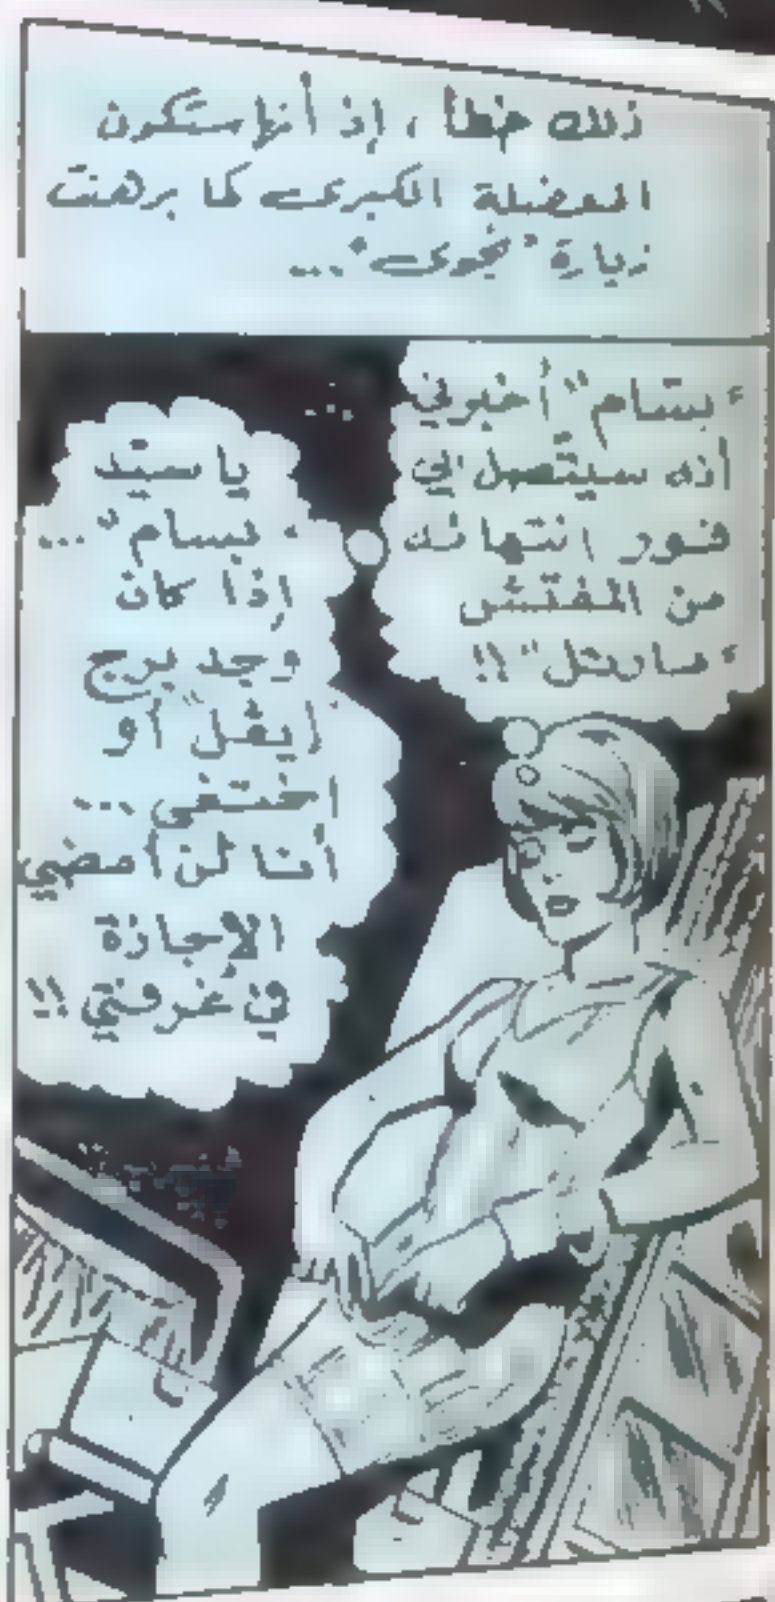 ذلك خطأ ، إذ أنها ستكون
المعضلة الكبرى كما برهنت
زيارة "نجوى"...
"بسّام" أخبرني
أنه سيتّصل بي
فور انتهائه
من المفتّش
"مارتل" !!
يا سيّد
"بسام"...
إذا كان
وجد برج
"إيفل" أو
اختفى ...
أنا لن أمضي
الإجازة
في غرفتي !!